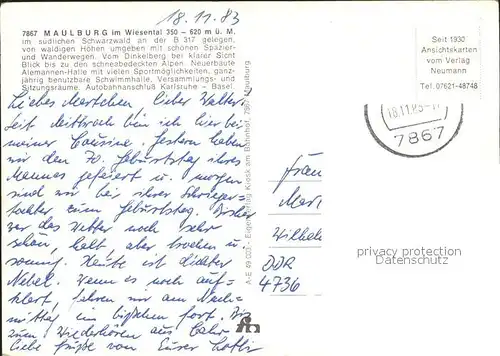 18.11.83
7867 MAULBURG im Wiesental 350 – 620 m ü. M.
im südlichen Schwarzwald an der B 317 gelegen,
von waldigen Höhen umgeben mit schönen Spazier-
und Wanderwegen. Vom Dinkelberg bei klarer Sicht
Blick bis zu den schneebedeckten Alpen. Neuerbaute
Alemannen-Halle mit vielen Sportmöglichkeiten, ganz-
jährig benutzbare Schwimmhalle, Versammlungs- und
Sitzungsräume. Autobahnanschluß Karlsruhe – Basel.
Liebes Martchen, lieber Walter
seit Mittwoch bin ich hier bei
meiner Cousine. Gestern haben
wir den 70. Geburtstag ihres
Mannes gefeiert u. morgen
sind wir bei ihrer Schwieger-
tochter zum Geburtstag. Bisher
war das Wetter noch sehr
schön, kalt, aber trocken u.
sonnig. Heute ist dichter
Nebel. Wenn es noch auf-
klart, fahren wir am Nach-
mittag ein bißchen fort. Bis
zum Wiederhören aus
liebe Grüße von Eurer Lotti
A-E 49.023 - Eigenverlag Kiosk am Bahnhof, 7867 Maulburg
Seit 1930
Ansichtskarten
vom Verlag
Neumann
Tel. 07621-48746
18.11.83
7867
Frau
Mar
Wilhelm
DDR
4736
privacy protection
Datenschutz